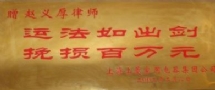 赠赵义厚律师
运法如出剑
挽损百万元